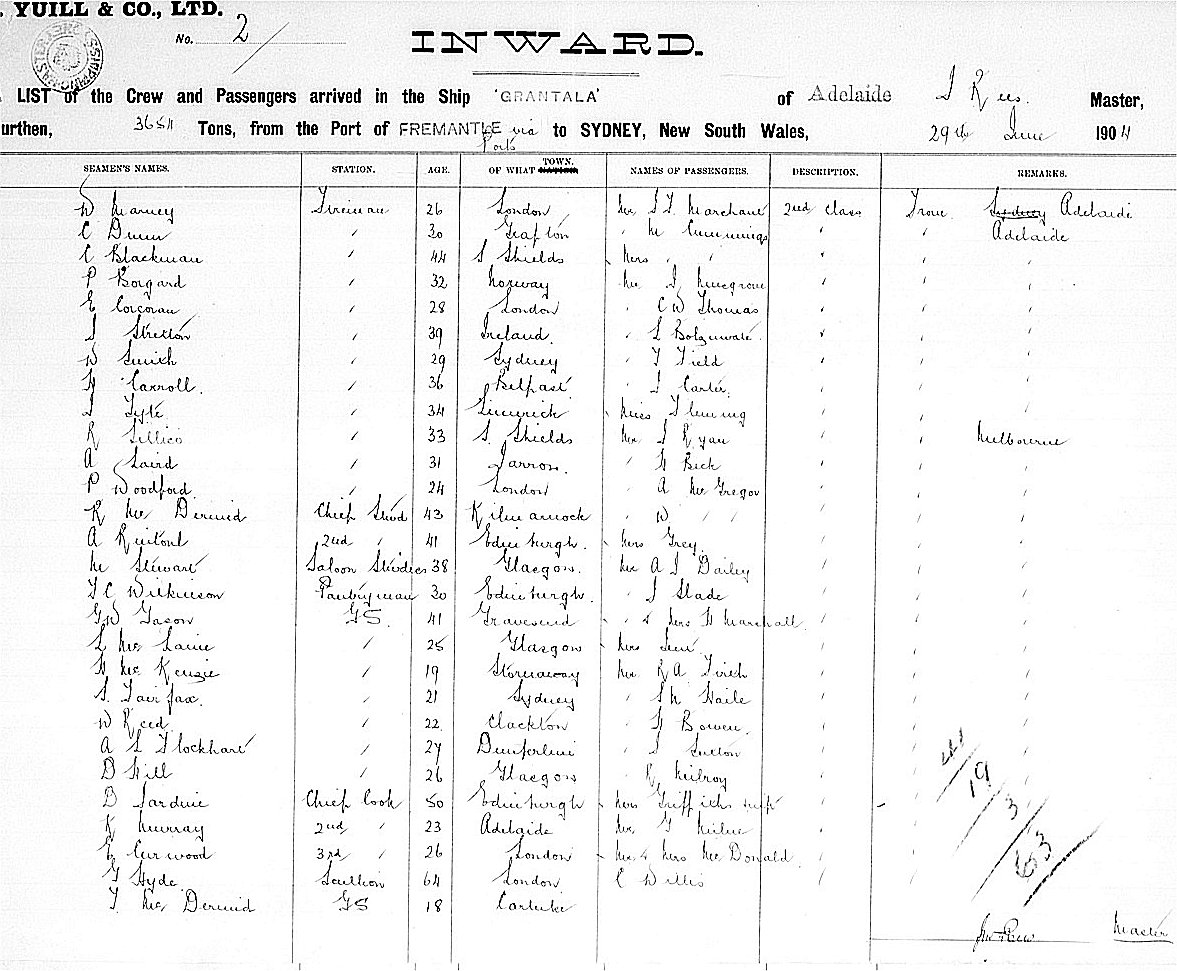 . YUILL & CO., LTD.
No. 2
INWARD.
LIST of the Crew and Passengers arrived in the Ship 'GRANTALA' of Adelaide J Rees. Master,
urthen, 3654 Tons, from the Port of FREMANTLE via Ports to SYDNEY, New South Wales, 29th June 1904
SEAMEN'S NAMES. STATION. AGE. OF WHAT TOWN. NATION NAMES OF PASSENGERS. DESCRIPTION. REMARKS.
W Marney Fireman 26 London Mr Marchant 2nd Class From Sydney Adelaide
C Dunn " 30 Grafton " M Cummings " " Adelaide
C Blackman " 44 S Shields Mrs " " " " "
P Borgard " 32 Norway Mr J Musgrove " " "
E Corcoran " 28 London " C W Thomas " " "
S Stretton " 39 Ireland. " " " "
W Smith " 29 Sydney " T Field " " "
H Carroll. " 36 Belfast " J Carter. " " "
J Tyte " 34 Limerick Miss Fleming " " "
R " 33 S. Shields Mr J Ryan " " Melbourne
A Laird " 31 Jarrow. " H Beck " " "
P Woodford " 24 London " A McGregor " " "
R McDermid Chief Stwd 43 Kilmarnock " W " " " " "
A 2nd " 41 Edinburgh. Mrs Grey. " " "
M Stewart Saloon 38 Glasgow. Mr A J Dailey " " "
T C Wilkinson Pantryman 30 Edinburgh. " J Slade " " "
G W Gason GS. 41 Gravesend " & Mrs H Marshall. " " "
L " 25 Glasgow Mrs " " "
H McKenzie " 19 Stornaway Mr R A Firth " " "
S. Fairfax. " 21 Sydney " S M Haile " " "
W Reed " 22 Clackton " H Bowen. " " "
A L Flockhart " 27 Dunferline " J Sutton " " "
D Hill " 26 Glasgow " R Milroy " "
B Jardine Chief Cook 50 Edinburgh Mrs Griffiths " "
K Murray 2nd " 23 Adelaide Mr G Milne " "
E Curwood 3rd " 26 London Mr & Mrs McDonald. " "
G Hyde. Scullion 64 London. C Willis " "
T. McDermid GS 18 Carluke
19
3
63
Master